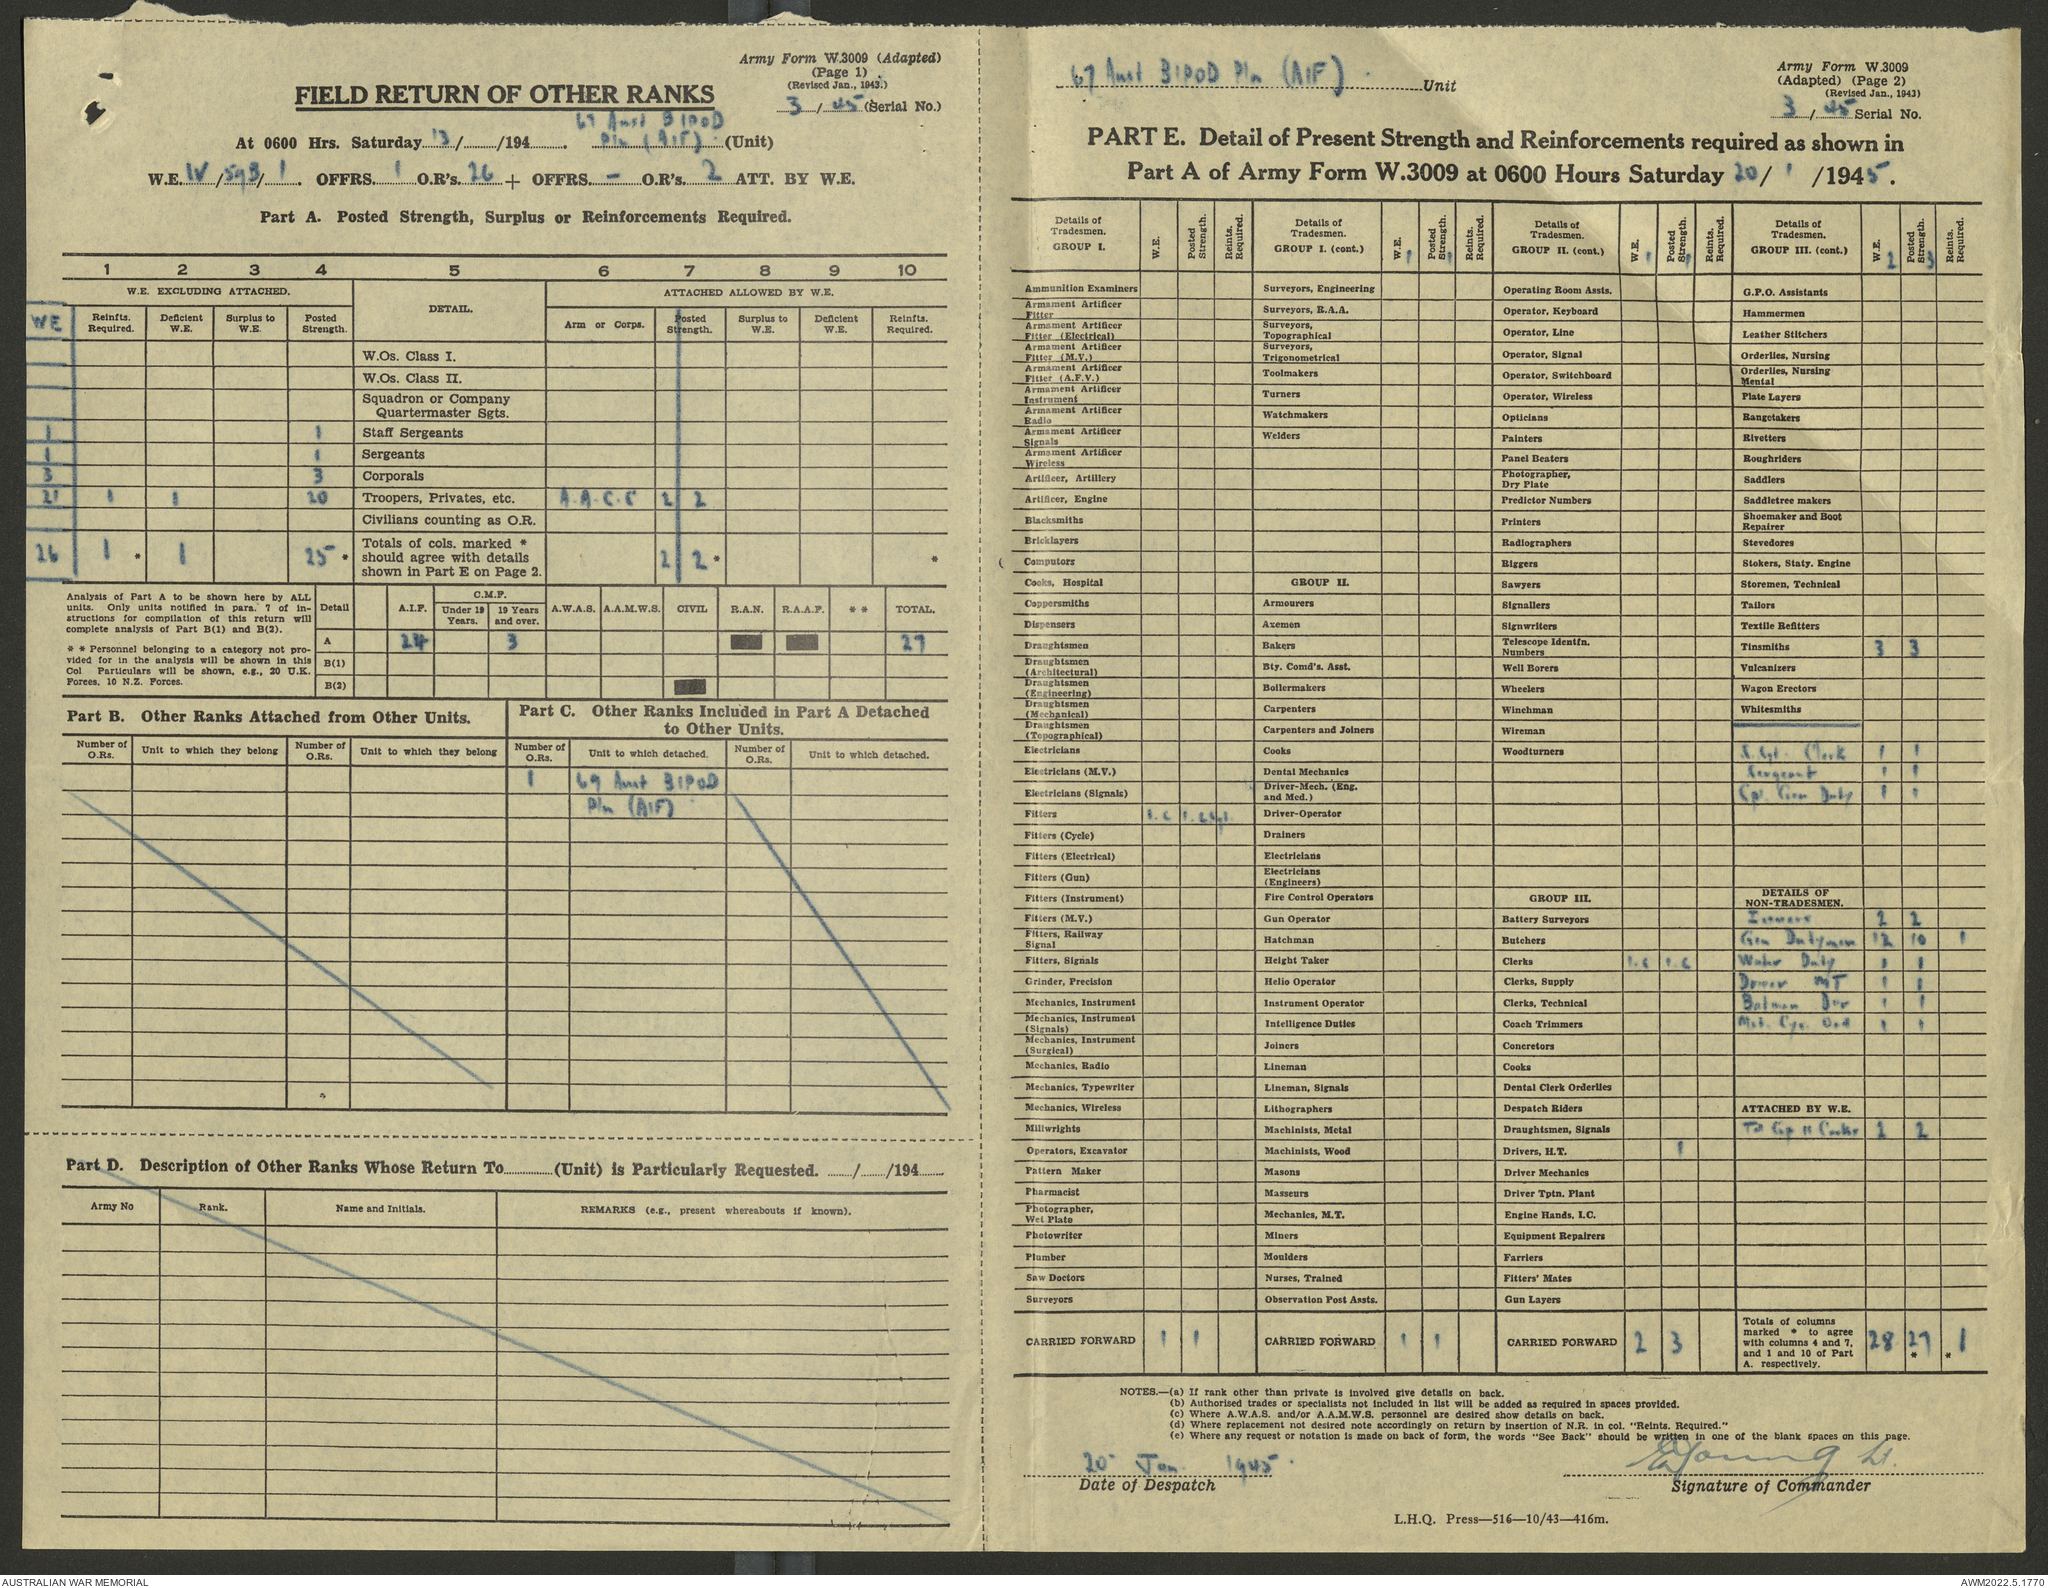 Army Form W.3009 (Adapted)
(Page 1)
(Revised Jan., 1943.)
3/45 (Serial No.)
FIELD RETURN OF OTHER RANKS
67 Aust BIPOD
At 0600 Hrs. Saturday 13/....../194...... . Pln (AIF) (Unit)
W.E. IV/59B/1. OFFRS. 1 O.R's. 26 + OFFRS. – O.R's. 2 ATT. BY W.E.
Part A. Posted Strength, Surplus or Reinforcements Required.
1 2 3 4 5 6 7 8 9 10
W.E. EXCLUDING ATTACHED. DETAIL. ATTACHED ALLOWED BY W.E.
WE Reinfts. Required. Deficient W.E. Surplus to W.E. Posted Strength. Arm or Corps. Posted Strength. Surplus to W.E. Deficient W.E. Reinfts. Required.
W.Os. Class I.
W.Os. Class II.
Squadron or Company
Quartermaster Sgts.
1 1 Staff Sergeants
1 1 Sergeants
3 3 Corporals
21 1 1 20 Troopers, Privates, etc. A.A.C.C 2 2
Civilians counting as O.R.
26 1 * 1 25 * Totals of cols. marked * should agree with details shown in Part E on Page 2. 2 2 * *
Analysis of Part A to be shown here by ALL
units. Only units notified in para. 7 of in-
structions for compilation of this return will
complete analysis of Part B(1) and B(2).
* * Personnel belonging to a category not pro-
vided for in the analysis will be shown in this
Col Particulars will be shown, e.g., 20 U.K.
Forces, 10 N.Z. Forces.
Detail A.I.F. C.M.F. Under 19 Years. 19 Years and over. A.W.A.S. A.A.M.W.S. CIVIL R.A.N. R.A.A.F. * * TOTAL.
A 24 3 27
B(1)
B(2)
Part B. Other Ranks Attached from Other Units.
Number of O.Rs. Unit to which they belong Number of O.Rs. Unit to which they belong
Part C. Other Ranks Included in Part A Detached
to Other Units.
Number of O.Rs. Unit to which detached. Number of O.Rs. Unit to which detached.
1 69 Aust BIPOD
Pln (AIF)
Part D. Description of Other Ranks Whose Return To............(Unit) is Particularly Requested. ....../....../194......
Army No Rank. Name and Initials. REMARKS (e.g., present whereabouts if known).
67 Aust BIPOD Pln (AIF) Unit
Army Form W.3009
(Adapted) (Page 2)
(Revised Jan., 1943)
3/45 Serial No.
PART E. Detail of Present Strength and Reinforcements required as shown in
Part A of Army Form W.3009 at 0600 Hours Saturday 20/ 1 /1945.
Details of Tradesmen. GROUP I. W.E. Posted Strength. Reints. Required.
Ammunition Examiners
Armament Artificer Fitter
Armament Artificer Fitter (Electrical)
Armament Artificer Fitter (M.V.)
Armament Artificer Fitter (A.F.V.)
Armament Artificer Instrument
Armament Artificer Radio
Armament Artificer Signals
Armament Artificer Wireless
Artificer, Artillery
Artificer, Engine
Blacksmiths
Bricklayers
Computors
Cooks, Hospital
Coppersmiths
Dispensers
Draughtsmen
Draughtsmen (Architectural)
Draughtsmen (Engineering)
Draughtsmen (Mechanical)
Draughtsmen (Topographical)
Electricians
Electricians (M.V.)
Electricians (Signals)
Fitters
Fitters (Cycle)
Fitters (Electrical)
Fitters (Gun)
Fitters (Instrument)
Fitters (M.V.)
Fitters, Railway Signal
Fitters, Signals
Grinder, Precision
Mechanics, Instrument
Mechanics, Instrument (Signals)
Mechanics, Instrument (Surgical)
Mechanics, Radio
Mechanics, Typewriter
Mechanics, Wireless
Millwrights
Operators, Excavator
Pattern Maker
Pharmacist
Photographer, Wet Plate
Photowriter
Plumber
Saw Doctors
Surveyors
CARRIED FORWARD 1 1
Details of Tradesmen. GROUP I. (cont.) W.E. 1 Posted Strength. 1 Reints. Required.
Surveyors, Engineering
Surveyors, R.A.A.
Surveyors, Topographical
Surveyors, Trigonometrical
Toolmakers
Turners
Watchmakers
Welders
GROUP II.
Armourers
Axemen
Bakers
Bty. Comd's. Asst.
Boilermakers
Carpenters
Carpenters and Joiners
Cooks
Dental Mechanics
Driver-Mech. (Eng. and Med.)
Driver-Operator
Drainers
Electricians
Electricians (Engineers)
Fire Control Operators
Gun Operator
Hatchman
Height Taker
Helio Operator
Instrument Operator
Intelligence Duties
Joiners
Lineman
Lineman, Signals
Lithographers
Machinists, Metal
Machinists, Wood
Masons
Masseurs
Mechanics, M.T.
Miners
Moulders
Nurses, Trained
Observation Post Assts.
CARRIED FORWARD 1 1
Details of Tradesmen. GROUP II. (cont.) W.E. 1 Posted Strength. 1 Reints. Required.
Operating Room Assts.
Operator, Keyboard
Operator, Line
Operator, Signal
Operator, Switchboard
Operator, Wireless
Opticians
Painters
Panel Beaters
Photographer, Dry Plate
Predictor Numbers
Printers
Radiographers
Riggers
Sawyers
Signallers
Signwriters
Telescope Identfn. Numbers
Well Borers
Wheelers
Winchman
Wireman
Woodturners
GROUP III.
Battery Surveyors
Butchers
Clerks
Clerks, Supply
Clerks, Technical
Coach Trimmers
Concretors
Cooks
Dental Clerk Orderlies
Despatch Riders
Draughtsmen, Signals
Drivers, H.T. 1
Driver Mechanics
Driver Tptn. Plant
Engine Hands, I.C.
Equipment Repairers
Farriers
Fitters' Mates
Gun Layers
CARRIED FORWARD 2 3
Details of Tradesmen. GROUP III. (cont.) W.E. 2 Posted Strength. 3 Reints. Required.
G.P.O. Assistants
Hammermen
Leather Stitchers
Orderlies, Nursing
Orderlies, Nursing Mental
Plate Layers
Rangetakers
Rivetters
Roughriders
Saddlers
Saddletree makers
Shoemaker and Boot Repairer
Stevedores
Stokers, Staty. Engine
Storemen, Technical
Tailors
Textile Refitters
Tinsmiths 3 3
Vulcanizers
Wagon Erectors
Whitesmiths
S. Sgt. Clerk 1 1
Sergeant 1 1
Cpl. Gen Duty 1 1
DETAILS OF
NON-TRADESMEN.
2 2
Gen Dutymen 12 10 1
Water Duty 1 1
Driver MT 1 1
Batman Dvr 1 1
Mot. Cyc. Ord 1 1
ATTACHED BY W.E.
Td Gp II Cooks 2 2
Totals of columns marked * to agree with columns 4 and 7, and 1 and 10 of Part A. respectively. 28 27 * * 1
NOTES.—(a) If rank other than private is involved give details on back.
(b) Authorised trades or specialists not included in list will be added as required in spaces provided.
(c) Where A.W.A.S. and/or A.A.M.W.S. personnel are desired show details on back.
(d) Where replacement not desired note accordingly on return by insertion of N.R. in col. "Reints. Required."
(e) Where any request or notation is made on back of form, the words "See Back" should be written in one of the blank spaces on this page.
20 Jan 1945
Date of Despatch
Young Lt.
Signature of Commander
L.H.Q. Press—516—10/43—416m.
AUSTRALIAN WAR MEMORIAL
AWM2022.5.1770